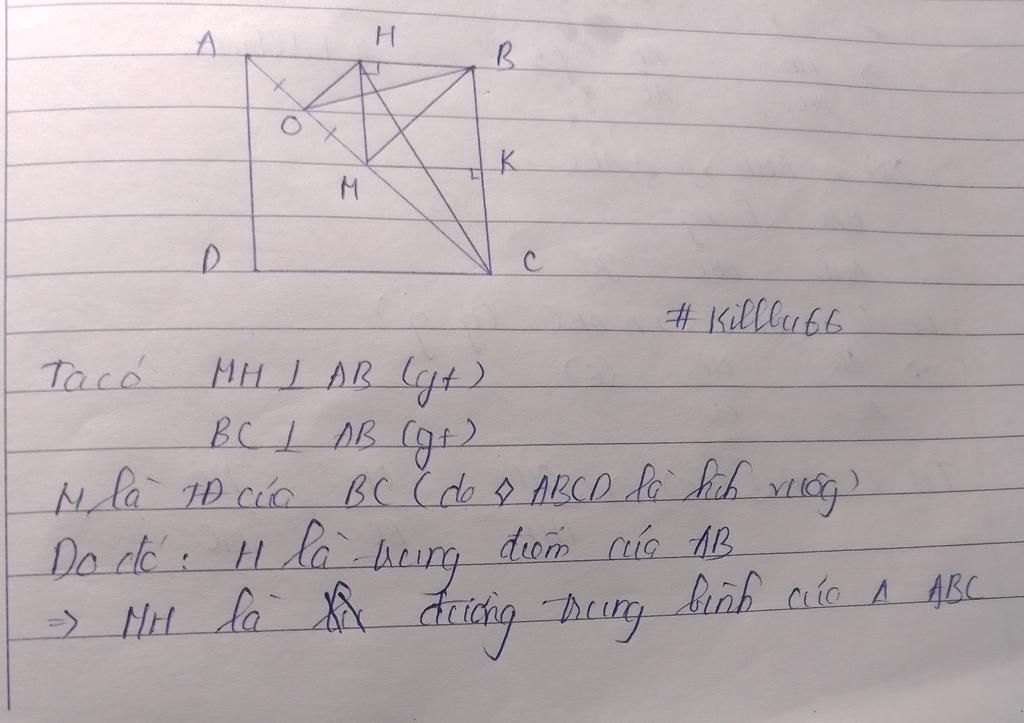 A H B
O
M K
D C
#Killlu66
Ta có MH ⊥ AB (gt)
BC ⊥ AB (gt)
M là TĐ của BC (do ◊ ABCD là hìh vuôg)
Do đó: H là trung điểm của AB
=> MH là đường trung bình của Δ ABC